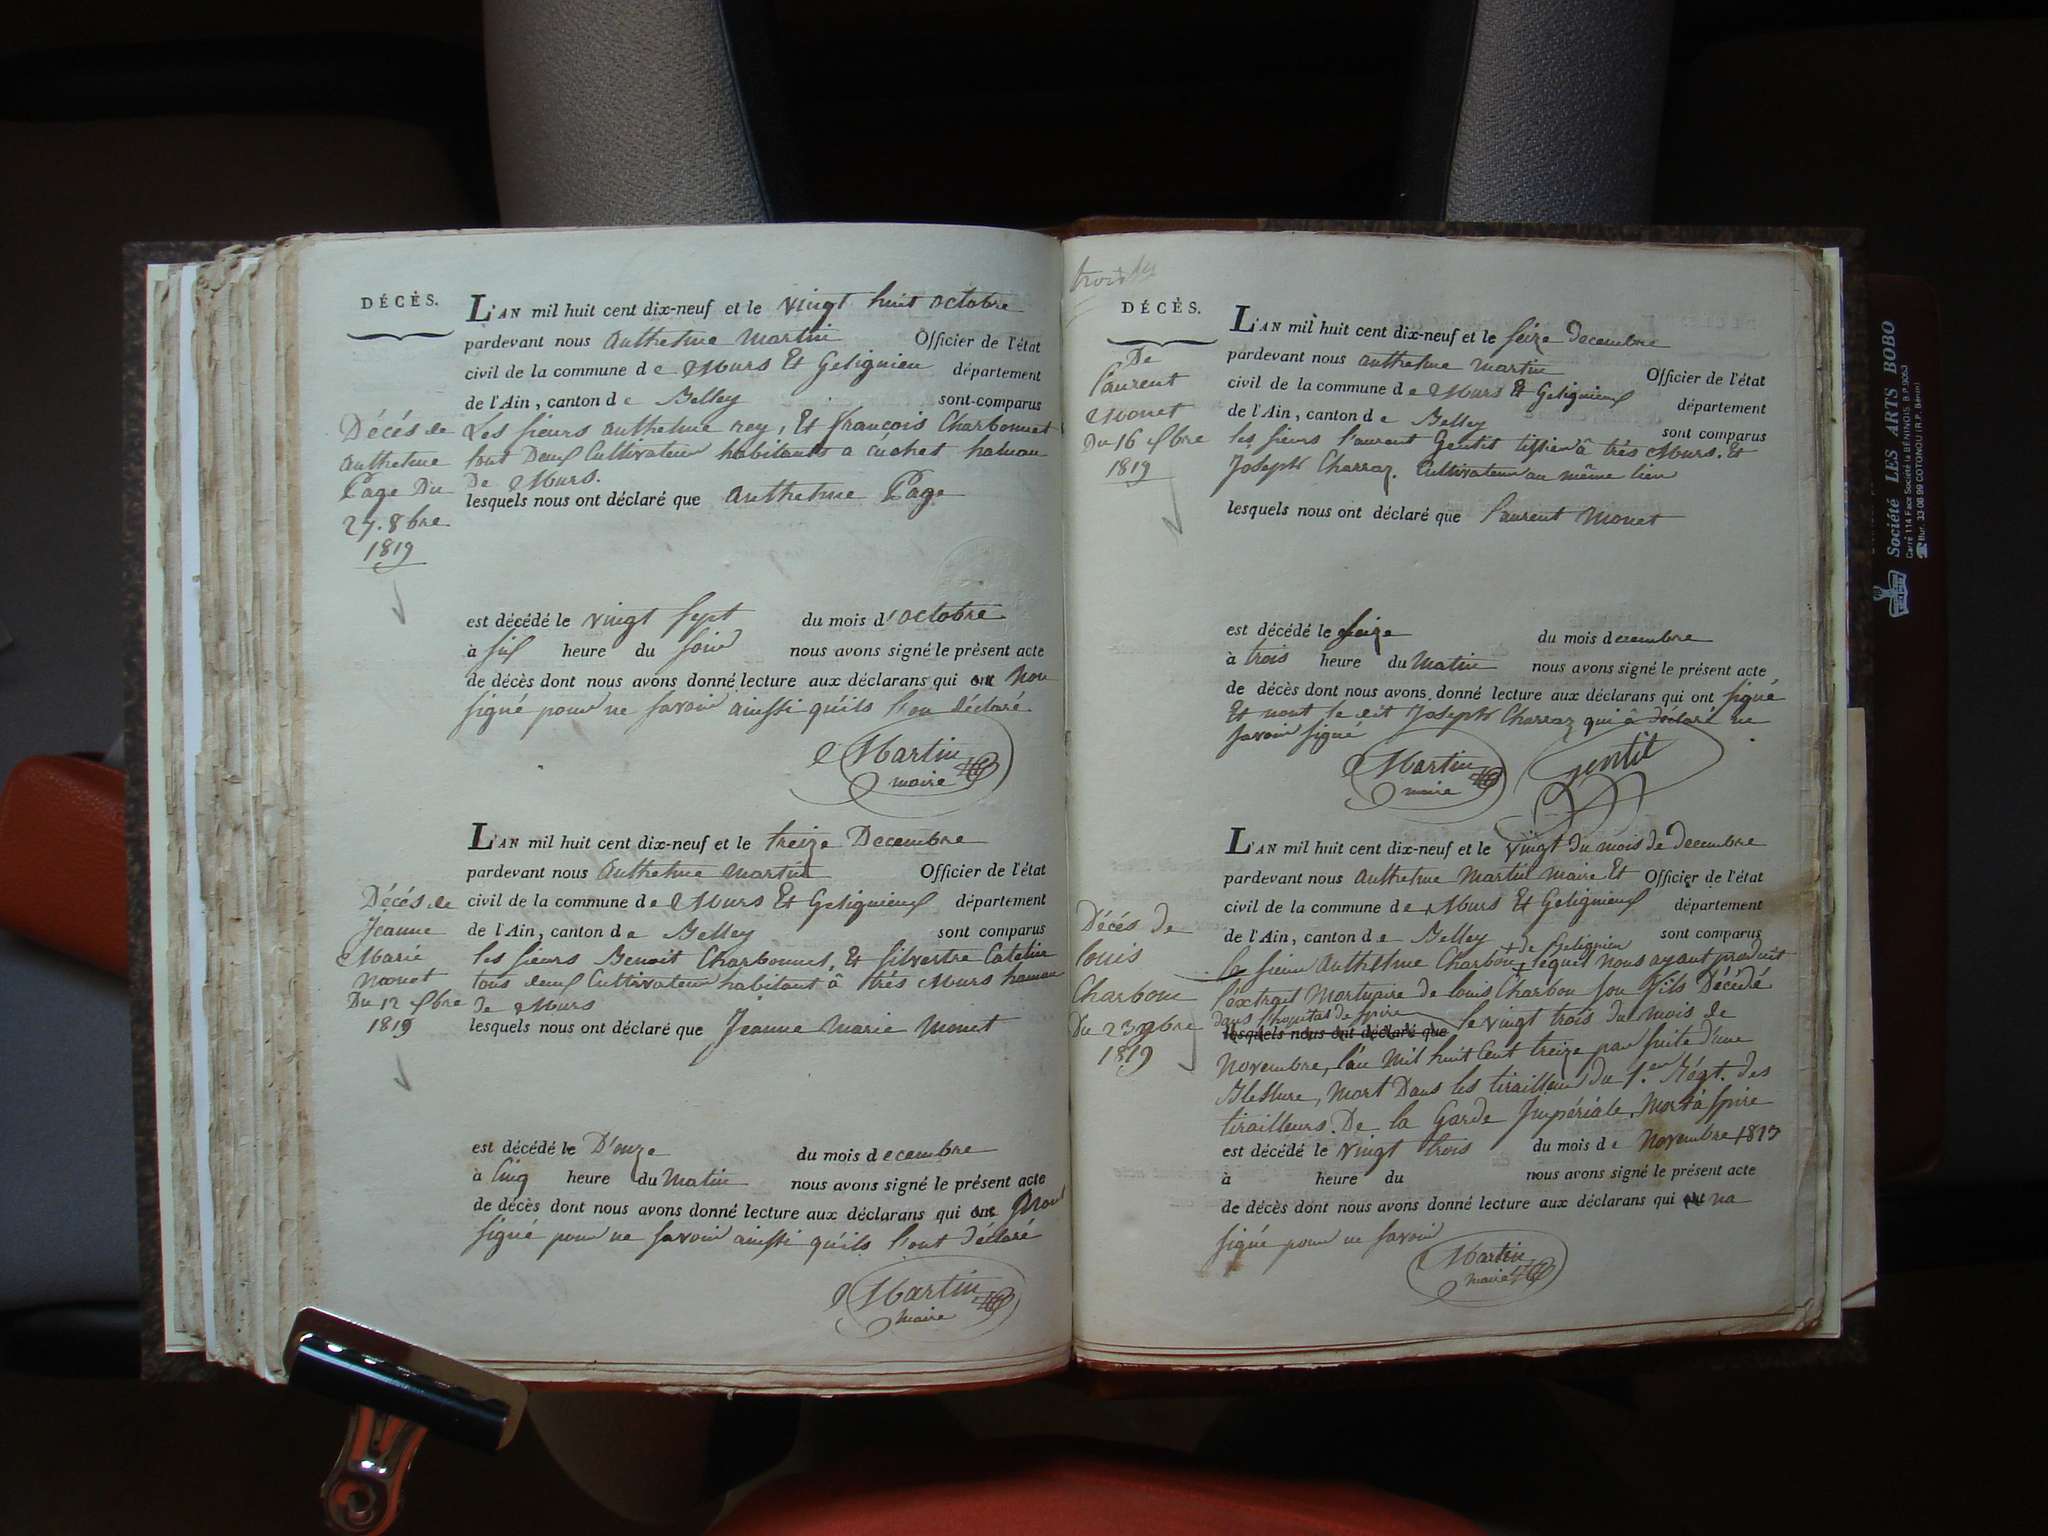 DÉCÈS.
L'AN mil huit cent dix-neuf et le vingt huit octobre
pardevant nous Anthelme Martin Officier de l'état
civil de la commune de Murs Et Gelignieu département
de l'Ain, canton de Belley sont comparus
Les sieurs Anthelme rey, Et françois Charbonnet
tout Deux Cultivateur habitants a cuchet hameau
de Murs.
lesquels nous ont déclaré que Anthelme Page
Décés de
Anthelme
Page Du
27. 8bre
1819
est décédé le vingt sept du mois d'octobre
à six heure du soir nous avons signé le présent acte
de décès dont nous avons donné lecture aux déclarans qui ont Non
signé pour ne savoir ainssi qu'ils l'on Déclaré
Martin
maire
L'AN mil huit cent dix-neuf et le treize Decembre
pardevant nous Anthelme Martin Officier de l'état
civil de la commune de Murs Et Gelignieux département
de l'Ain, canton de Belley sont comparus
les sieurs Benoit Charbonnet, Et Silvestre Catelin
tous deux Cultivateur habitant â trés Murs hameau
de Murs
lesquels nous ont déclaré que Jeanne Marie Monet
Décés de
Jeanne
Marie
Monet
Du 12 Xbre
1819
est décédé le D'ouze du mois decembre
à Cinq heure du Matin nous avons signé le présent acte
de décès dont nous avons donné lecture aux déclarans qui ont
signé pour ne savoir ainssi qu'ils l'ont déclaré
Martin
maire
DÉCÈS.
L'AN mil huit cent dix-neuf et le seize Decembre
pardevant nous anthelme Martin Officier de l'état
civil de la commune de Murs Et Gelignieux département
de l'Ain, canton de Belley sont comparus
les sieurs laurent Gentit tissier â trés Murs. Et
Joseph Charraz. Cultivateur au même lieu
lesquels nous ont déclaré que laurent Monet
De
laurent
Monet
Du 16 Xbre
1819
est décédé le seize du mois decembre
à trois heure du Matin nous avons signé le présent acte
de décès dont nous avons donné lecture aux déclarans qui ont signé
Et nont le dit Joseph Charraz qui â déclaré ne
savoir signé
Martin
maire
Gentit
L'AN mil huit cent dix-neuf et le vingt du mois de decembre
pardevant nous Anthelme Martin Maire Et Officier de l'état
civil de la commune de Murs Et Gelignieux département
de l'Ain, canton de Belley sont comparus
le sieur Anthelme Charbon + de Gelignieu léquel nous ayant produit
l'éxtrait Mortuaire de louis Charbon son fils Décédé
dans l'hopital de spire
lesquels nous ont déclaré que le vingt trois du mois de
Novembre, l'an Mil huit Cent treize par suite d'une
Blessure, Mort Dans les tirailleurs du 1.er Régt. des
tirailleurs. De la Garde Impériale, Mort à Spire
Décés de
louis
Charbon
Du 23 9bre
1819
est décédé le vingt trois du mois de Novembre 1813
à heure du nous avons signé le présent acte
de décès dont nous avons donné lecture aux déclarans qui ont na
signé pour ne savoir
Martin
maire
Société LES ARTS BOBO
Carré 114 Face Société la BÉNINOIS B.P. 9053
Bur. 33 06 99 COTONOU (R.P. Bénin)